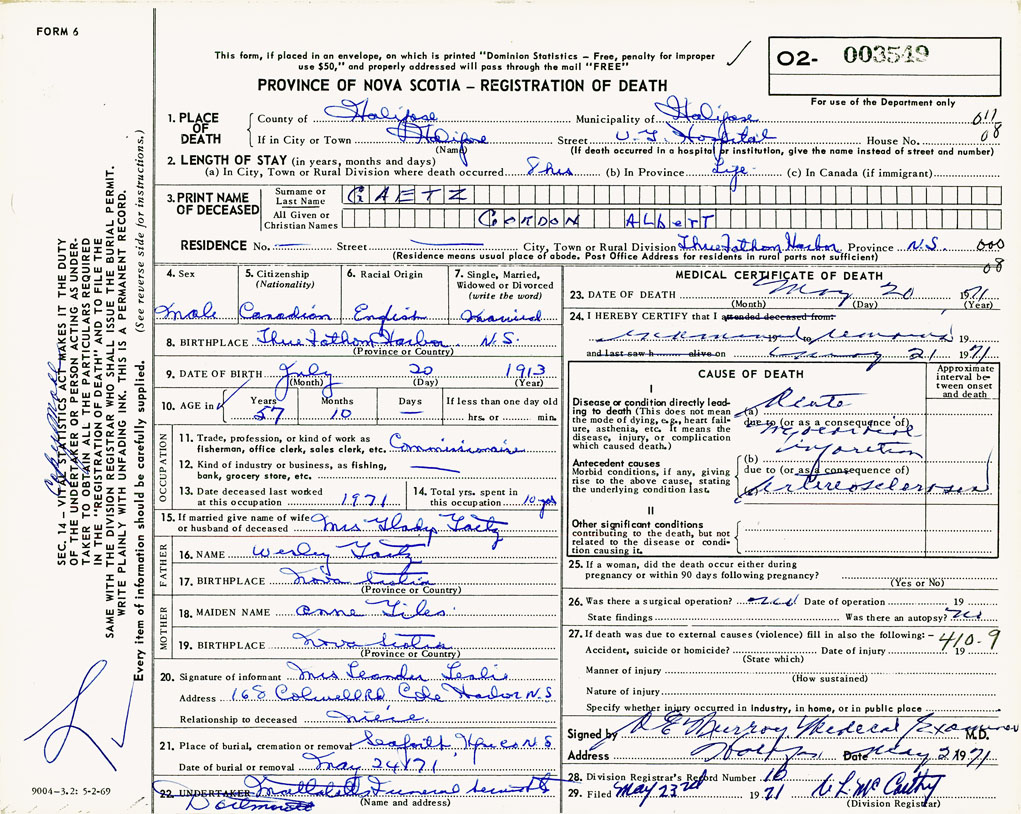 FORM 6
This form, if placed in an envelope, on which is printed "Dominion Statistics – Free, penalty for improper
use $50," and properly addressed will pass through the mail "FREE"
O2- 003549
PROVINCE OF NOVA SCOTIA – REGISTRATION OF DEATH
For use of the Department only
1. PLACE OF DEATH
County of Halifax Municipality of Halifax 611
If in City or Town Halifax Street V.G. Hospital House No. 08
(Name) (If death occurred in a hospital or institution, give the name instead of street and number)
2. LENGTH OF STAY (in years, months and days)
(a) In City, Town or Rural Division where death occurred 8 hrs (b) In Province Life (c) In Canada (if immigrant)
3. PRINT NAME OF DECEASED
Surname or Last Name GAETZ
All Given or Christian Names GORDON ALBERT
RESIDENCE No. — Street — City, Town or Rural Division Three Fathom Harbor Province N.S. 000
(Residence means usual place of abode. Post Office Address for residents in rural parts not sufficient) 08
4. Sex
Male
5. Citizenship
(Nationality)
Canadian
6. Racial Origin
English
7. Single, Married,
Widowed or Divorced
(write the word)
Married
8. BIRTHPLACE Three Fathom Harbor N.S.
(Province or Country)
9. DATE OF BIRTH July 20 1913
(Month) (Day) (Year)
10. AGE in Years Months Days If less than one day old
57 10 — hrs. or min.
OCCUPATION
11. Trade, profession, or kind of work as
fisherman, office clerk, sales clerk, etc. Commissionaire
12. Kind of industry or business, as fishing,
bank, grocery store, etc. —
13. Date deceased last worked
at this occupation 1971
14. Total yrs. spent in
this occupation 10 yrs
15. If married give name of wife
or husband of deceased Mrs Gladys Gaetz
FATHER
16. NAME Wesley Gaetz
17. BIRTHPLACE Nova Scotia
(Province or Country)
MOTHER
18. MAIDEN NAME Anne Giles
19. BIRTHPLACE Nova Scotia
(Province or Country)
20. Signature of informant Mrs Leander Leslie
Address 168 Colwell Rd. Cole Harbor N.S
Relationship to deceased niece.
21. Place of burial, cremation or removal Seaforth Hfx Co N.S
Date of burial or removal May 24 71
22. UNDERTAKER Funeral
(Name and address)
Dartmouth
MEDICAL CERTIFICATE OF DEATH
23. DATE OF DEATH May 20 1971
(Month) (Day) (Year)
24. I HEREBY CERTIFY that I attended deceased from
examined remains 19 to 19
and last saw h alive on May 21 1971
CAUSE OF DEATH
Approximate
interval be-
tween onset
and death
I
Disease or condition directly lead-
ing to death (This does not mean
the mode of dying, e.g., heart fail-
ure, asthenia, etc. It means the
disease, injury, or complication
which caused death.)
(a) Acute
due to (or as a consequence of)
myocardial
infarction
Antecedent causes
Morbid conditions, if any, giving
rise to the above cause, stating
the underlying condition last.
(b)
due to (or as a consequence of)
arteriosclerosis
II
Other significant conditions
contributing to the death, but not
related to the disease or condi-
tion causing it.
25. If a woman, did the death occur either during
pregnancy or within 90 days following pregnancy?
(Yes or No)
26. Was there a surgical operation? no Date of operation 19
State findings Was there an autopsy? no
27. If death was due to external causes (violence) fill in also the following: – 410-9
Accident, suicide or homicide? Date of injury 19
(State which)
Manner of injury
(How sustained)
Nature of injury
Specify whether injury occurred in industry, in home, or in public place
Signed by D E Murray Medical Examiner M.D.
Address Halifax Date May 21 1971
28. Division Registrar's Record Number 10
29. Filed May 23rd 1971 McCarthy
(Division Registrar)
SEC. 14 – VITAL STATISTICS ACT MAKES IT THE DUTY
OF THE UNDERTAKER OR PERSON ACTING AS UNDER-
TAKER TO OBTAIN ALL THE PARTICULARS REQUIRED
IN THE "REGISTRATION OF DEATH" AND TO FILE THE
SAME WITH THE DIVISION REGISTRAR WHO SHALL ISSUE THE BURIAL PERMIT.
WRITE PLAINLY WITH UNFADING INK. THIS IS A PERMANENT RECORD.
Every item of information should be carefully supplied. (See reverse side for instructions.)
9004–3.2: 5-2-69